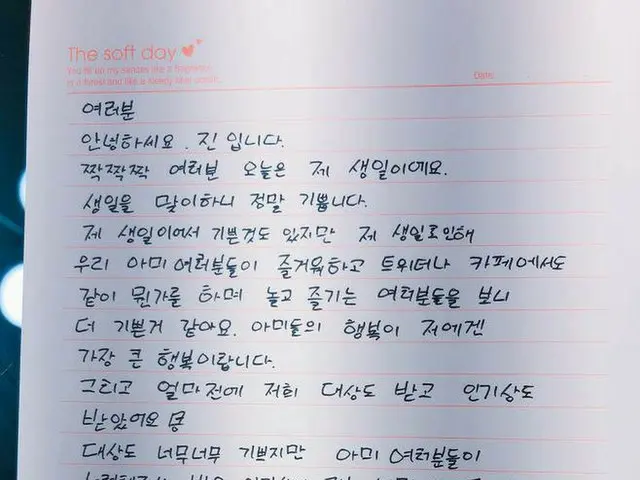 The soft day
You fill up my senses like a fragrance
in a forest and like a lovely
Date.
여러분
안녕하세요. 진 입니다.
짝짝짝 여러분 오늘은 제 생일이에요.
생일을 맞이하니 정말 기쁩니다.
제 생일이여서 기쁜것도 있지만 제 생일로인해
우리 아미여러분들이 즐거워하고 트위터나 카페에서도
같이 뭔가를 하며 놀고 즐기는 여러분들을 보니
더 기쁜거 같아요. 아미들의 행복이 저에겐
가장 큰 행복이랍니다.
그리고 얼마전에 저희 대상도 받고 인기상도
받았어요
대상도 너무너무 기쁘지만 아미 여러분들이